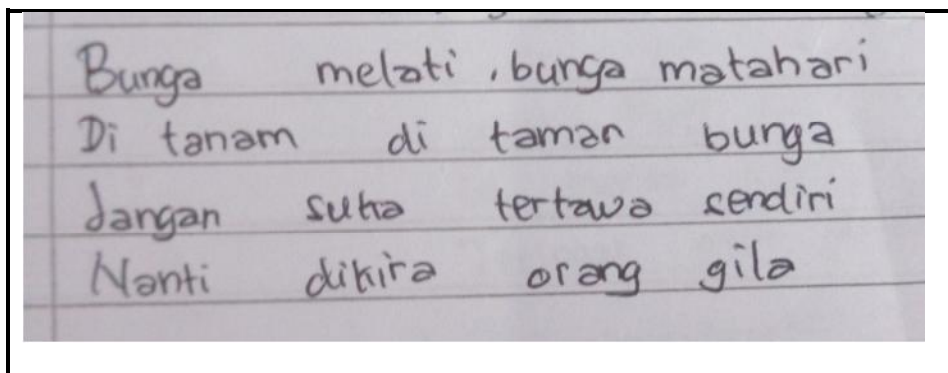 Bunga melati, bunga matahari
Di tanam di taman bunga
Jangan suka tertawa sendiri
Nanti dikira orang gila